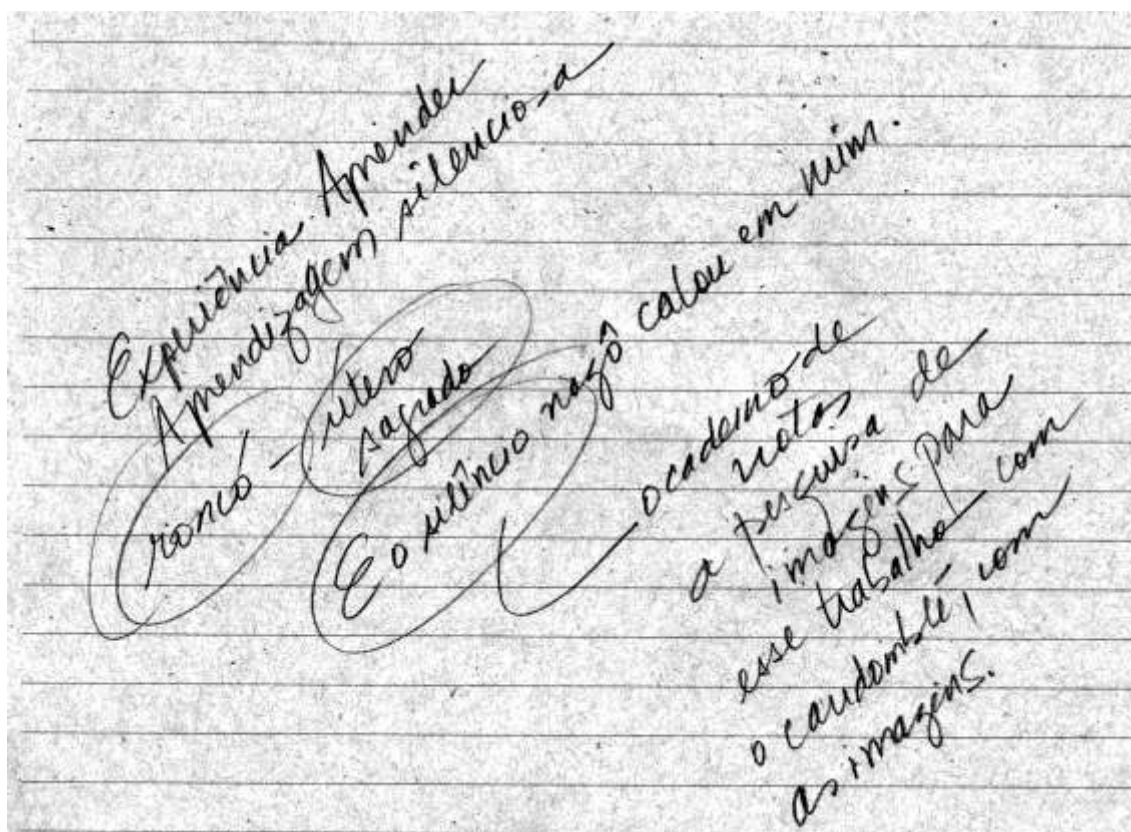 Experiência Aprender
Aprendizagem silenciosa
roncó - útero
sagrado
E o silêncio nagô calou em mim.
o caderno de
notas
a pesquisa de
imagens para
esse trabalho com
o candomblé, com
as imagens.